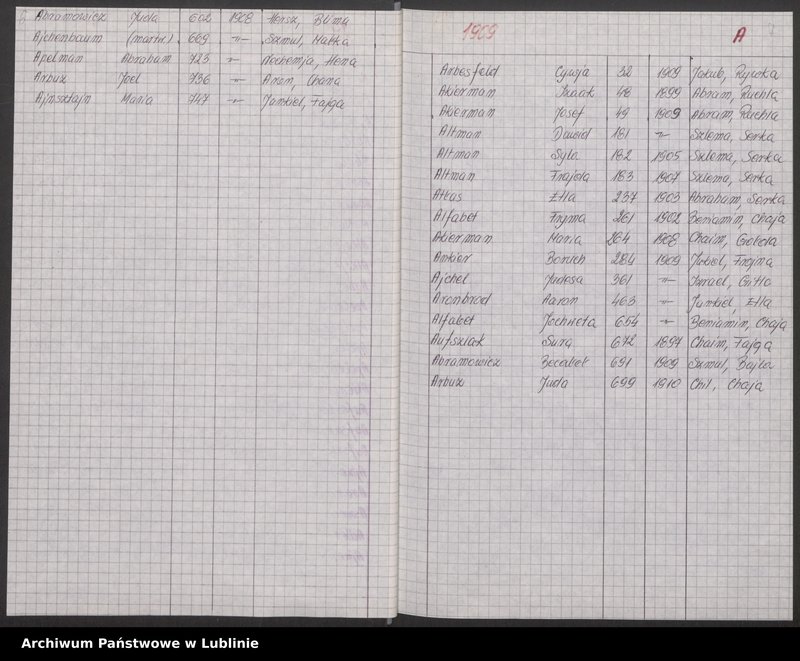 Abramowicz Juda 602 1908 Hersz, Blima
Ajchenbaum (martw.) 669 -"- Szmul, Malka
Apelman Abraham 723 -"- Nochemja, Hena
Arbuz Joel 736 -"- Aron, Chana
Ajnsztajn Maria 747 -"- Jankiel, Fajga
1909 A
Arbesfeld Cywja 32 1909 Jakub, Rywka
Akierman Icaak 48 1899 Abram, Ruchla
Akierman Josef 49 1909 Abram, Ruchla
Altman Dawid 181 -"- Szlema, Serka
Altman Syla 182 1905 Szlema, Serka
Altman Frajda 183 1907 Szlema, Serka
Atłas Etla 237 1903 Abraham, Serka
Alfabet Fryma 261 1902 Beniamin, Chaja
Akierman Maria 264 1908 Chaim, Golda
Ankier Boruch 284 1909 Jakiel, Frojma
Ajchel Judesa 361 -"- Israel, Gitla
Aronbrod Aaron 463 -"- Jankiel, Etla
Alfabet Jochweta 654 -"- Beniamin, Chaja
Aufszlak Sura 672 1897 Chaim, Fajga
Abramowicz Becalel 691 1909 Szmul, Bajla
Arbuz Juda 699 1910 Chil, Chaja
Archiwum Państwowe w Lublinie